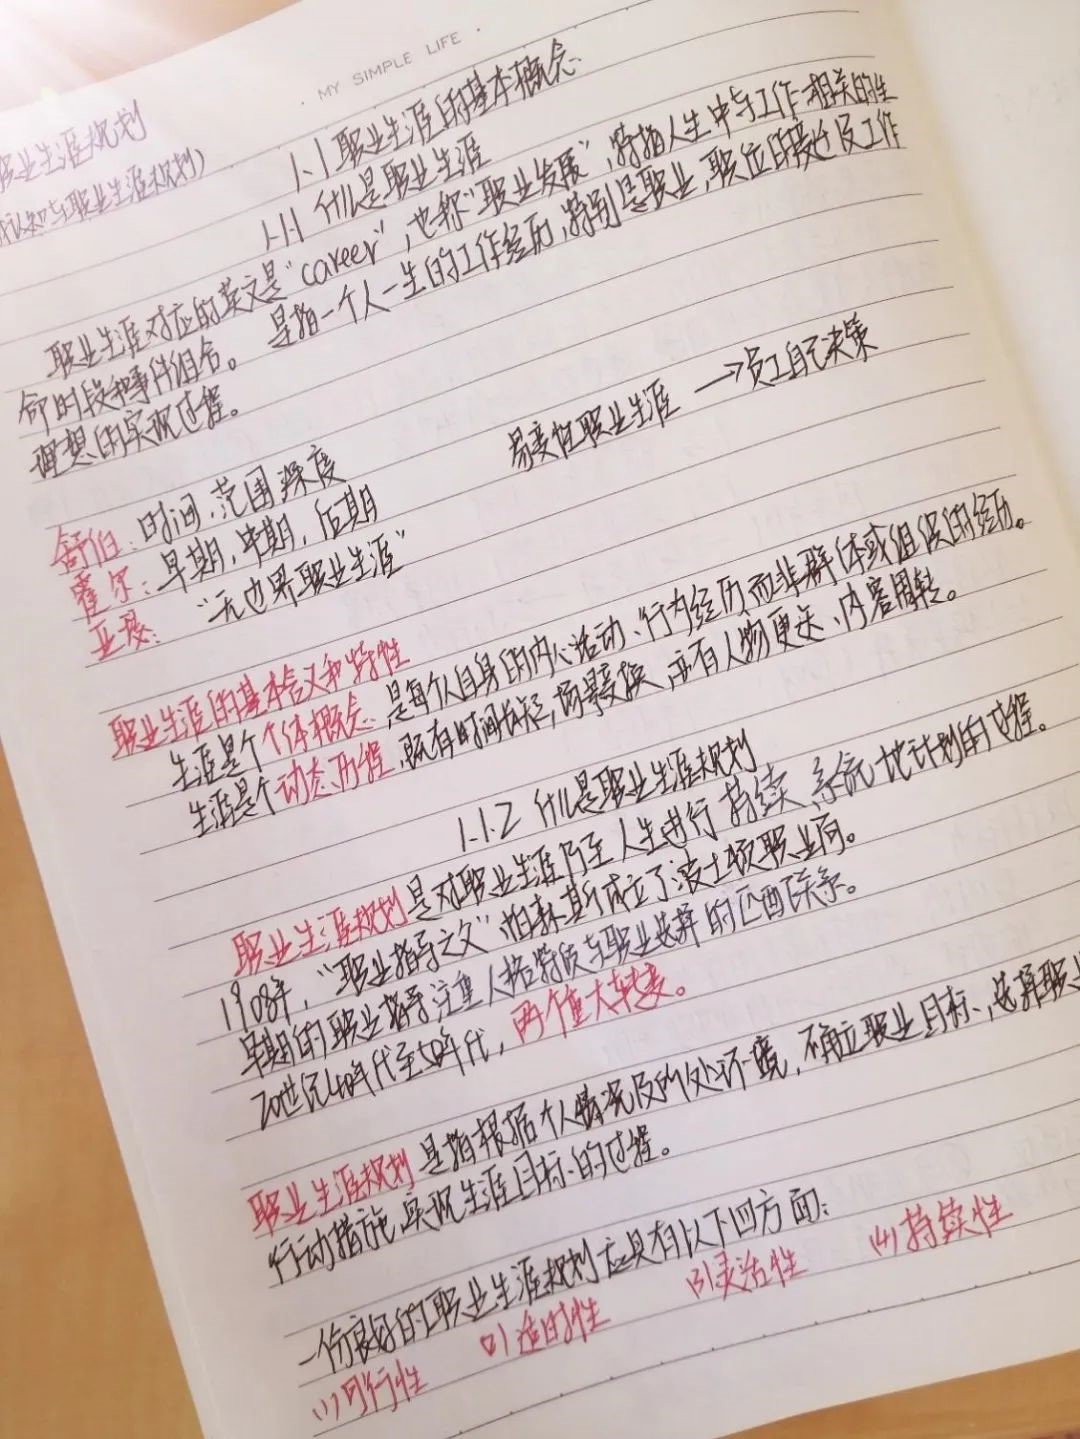 MY SIMPLE LIFE
职业生涯规划
认知与职业生涯规划)
1.1 职业生涯的基本概念
1.1.1 什么是职业生涯
职业生涯对应的英文是"career",也称"职业发展",特指人生中与工作相关的生
命时段和事件组合。 是指一个人一生的工作经历,特别是职业,职位的变迁及工作
理想的实现过程。
舒伯:时间,范围,深度
易变性职业生涯 →员工自己决策
霍尔:早期,中期,后期
亚瑟: "无边界职业生涯"
职业生涯的基本含义和特性
生涯是个个体概念,是每个人自身的内心活动、行为经历,而非群体或组织的经历。
生涯是个动态历程,既有时间,场景变换,亦有人物更迭、内容周转。
1.1.2 什么是职业生涯规划
职业生涯规划是对职业生涯乃至人生进行持续系统地计划的过程。
1908年,"职业指导之父"帕森斯成立了波士顿职业局。
早期的职业指导注重人格特质与职业选择的匹配联系。
20世纪40年代至50年代,两个重大转变。
职业生涯规划是指根据个人情况及所处环境,确立职业目标,选择职业
行动措施,实现生涯目标的过程。
一份良好的职业生涯规划应具有以下四方面:
(1)可行性 (2)适时性 (3)灵活性 (4)持续性